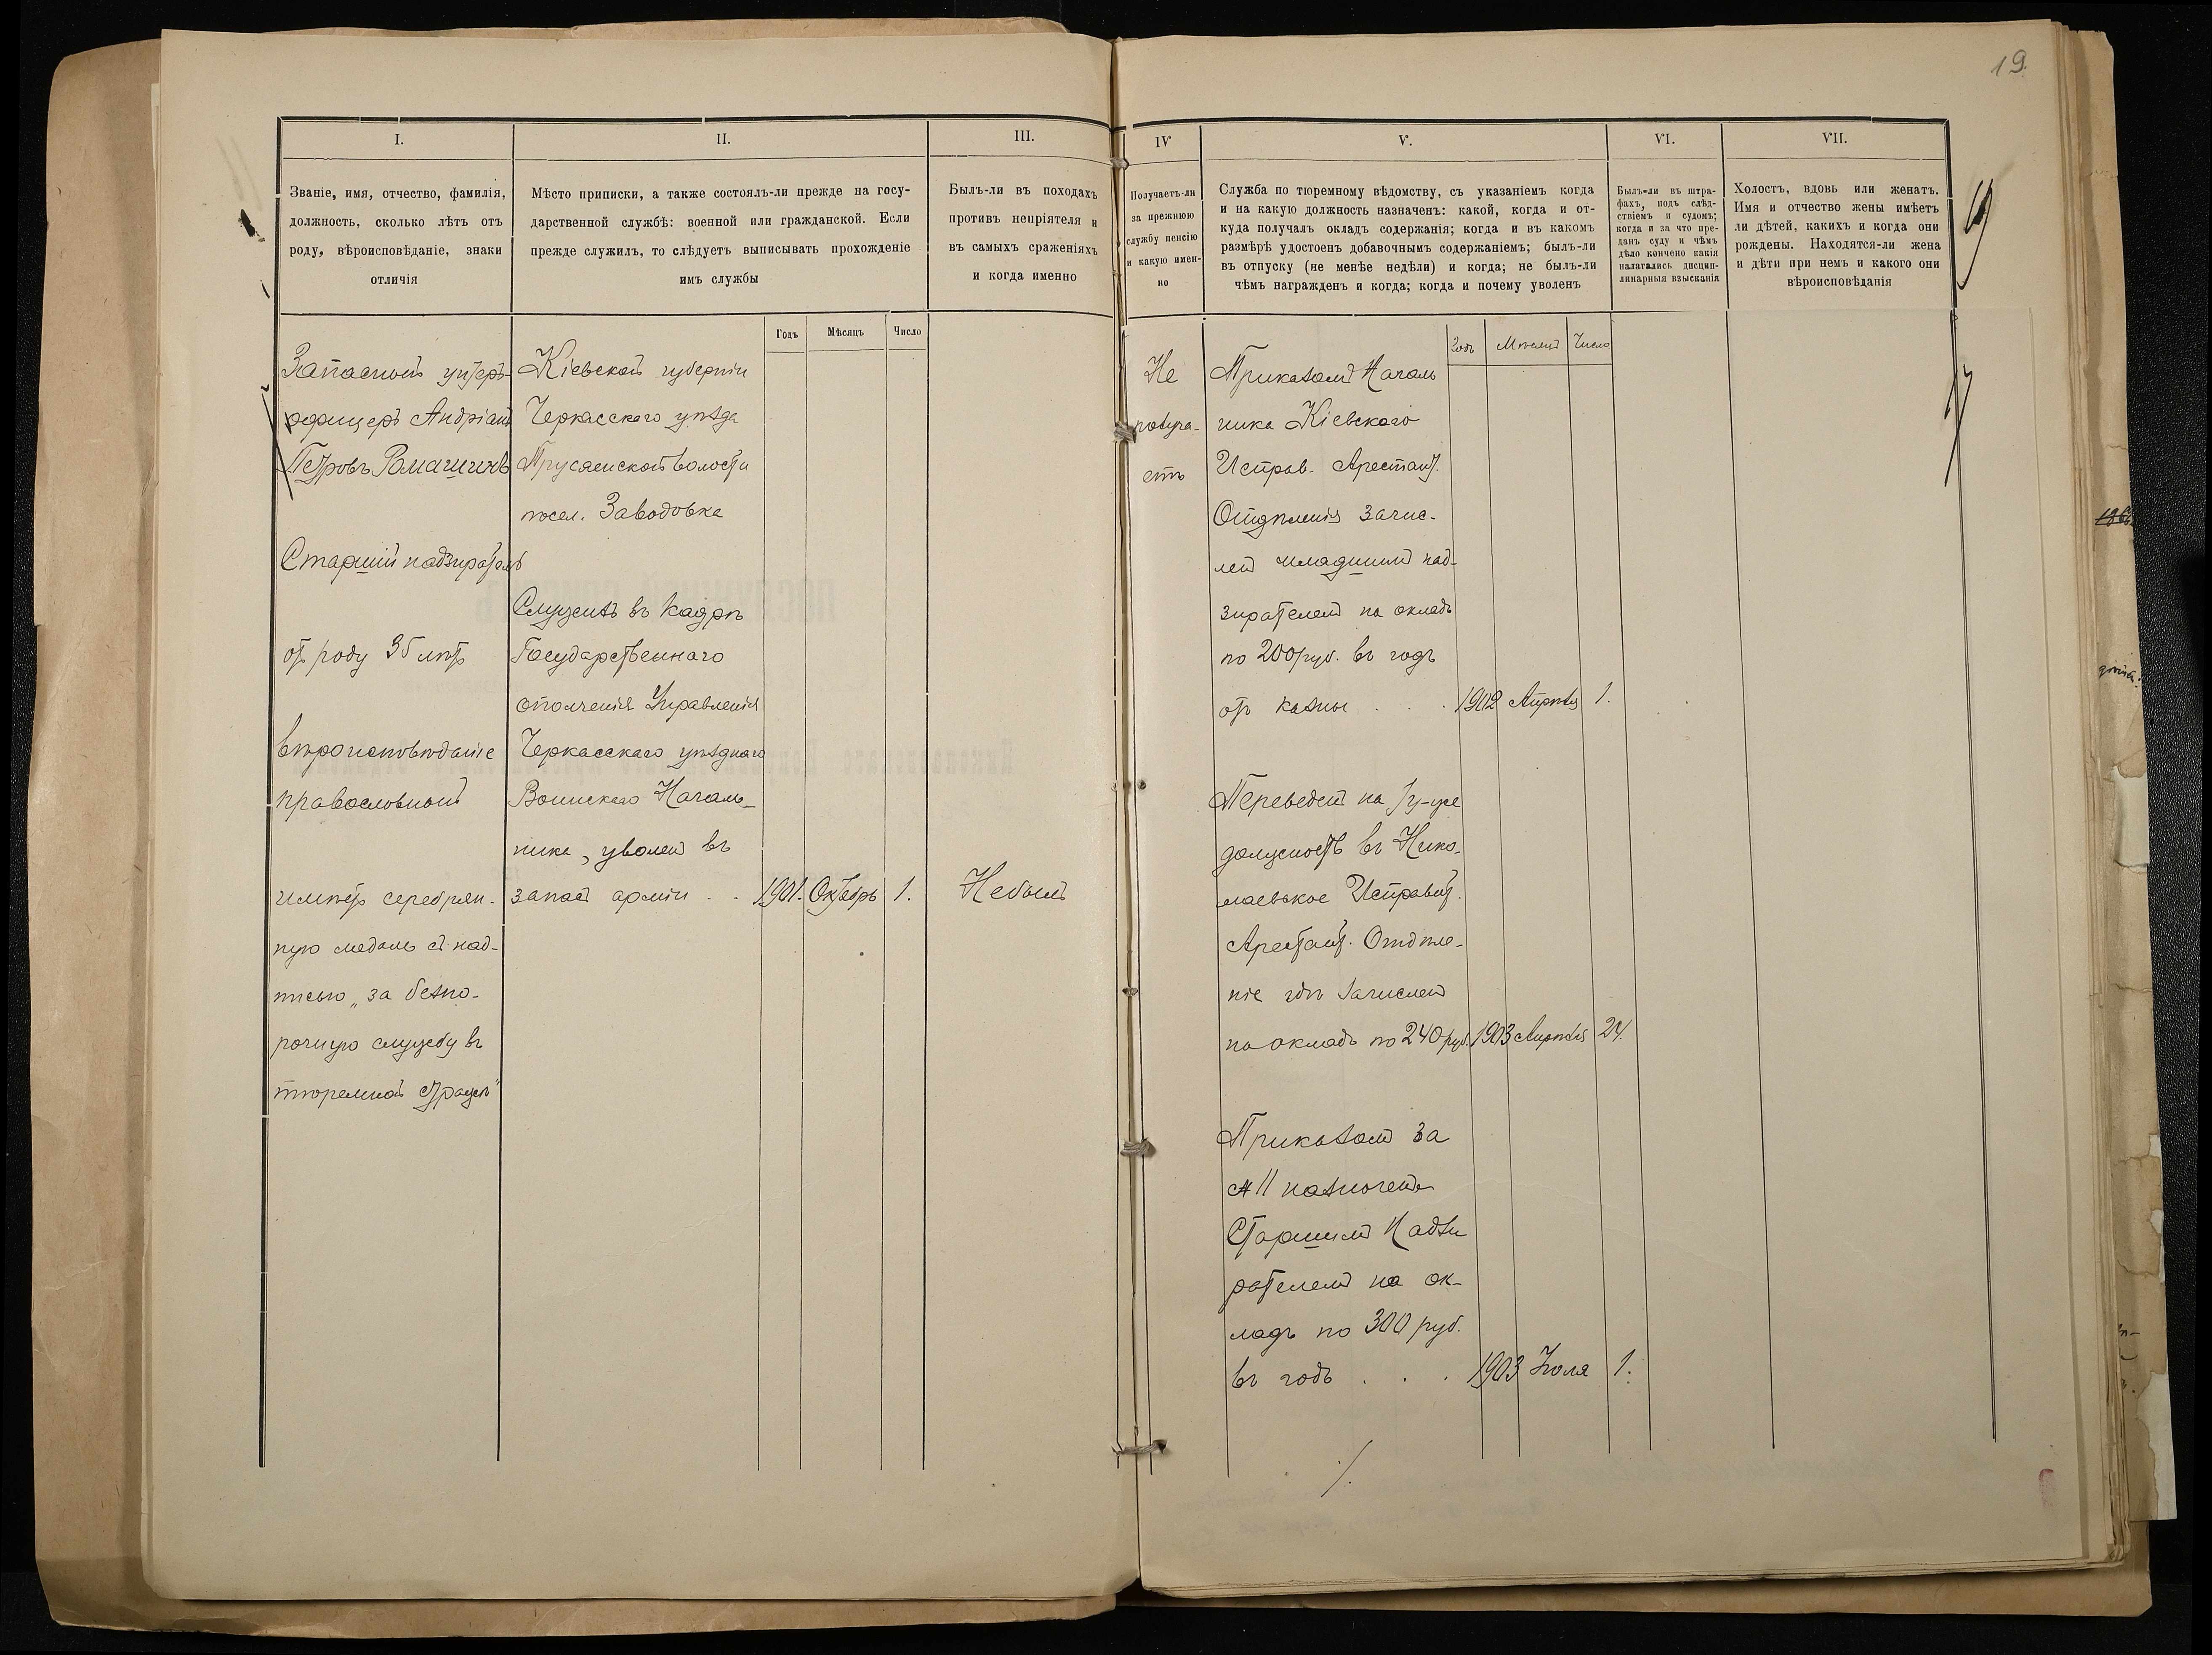 19.
I.
Званіе, имя, отчество, фамилія,
должность, сколько лѣтъ отъ
роду, вѣроисповѣданіе, знаки
отличія
Запасной унтеръ-
офицеръ Андріанъ
Петровъ Ромашинъ
Старшій надзиратель
отъ роду 35 лѣтъ
вѣроисповѣданіе
православный
имѣетъ серебрян-
ную медаль съ над-
писью „за безпо-
рочную службу въ
тюремной стражѣ"
II.
Мѣсто приписки, а также состоялъ-ли прежде на госу-
дарственной службѣ: военной или гражданской. Если
прежде служилъ, то слѣдуетъ выписывать прохожденіе
имъ службы
Годъ Мѣсяцъ Число
Кіевской губерніи
Черкасского уѣзда
волости
посел. Заводовка
Служилъ въ кадрѣ
Государственнаго
ополченія Управленія
Черкасскаго уѣзднаго
Воинскаго Началь-
ника, уволенъ въ
запасъ арміи . . 1901. Октябрь 1.
III.
Былъ-ли въ походахъ
противъ непріятеля и
въ самыхъ сраженіяхъ
и когда именно
Небылъ
IV
Получаетъ-ли
за прежнюю
службу пенсію
и какую имен-
но
Не
получа-
етъ
V.
Служба по тюремному вѣдомству, съ указаніемъ когда
и на какую должность назначенъ: какой, когда и от-
куда получалъ окладъ содержанія; когда и въ какомъ
размѣрѣ удостоенъ добавочнымъ содержаніемъ; былъ-ли
въ отпуску (не менѣе недѣли) и когда; не былъ-ли
чѣмъ награжденъ и когда; когда и почему уволенъ
Годъ Мѣсяцъ Число
Приказомъ Началь
ника Кіевскаго
Исправ. Арестант.
Отдѣленія зачис-
ленъ младшимъ над-
зирателемъ на окладъ
по 200 руб. въ годъ
отъ казны . . . 1902 Апрѣля 1.
Переведенъ на ту-же
должность въ Нико-
лаевское Исправит.
Арестант. Отдѣле-
ніе гдѣ зачисленъ
на окладъ по 240 руб. 1903 Апрѣля 24.
Приказомъ за
№ 11 назначенъ
Старшимъ Надзи
рателемъ на ок-
ладъ по 300 руб.
въ годъ . . . 1903 Іюля 1.
VI.
Былъ-ли въ штра-
фахъ, подъ слѣд-
ствіемъ и судомъ;
когда и за что пре-
данъ суду и чѣмъ
дѣло кончено какія
налагались дисцип-
линарныя взысканія
VII.
Холостъ, вдовъ или женатъ.
Имя и отчество жены имѣетъ
ли дѣтей, какихъ и когда они
рождены. Находятся-ли жена
и дѣти при немъ и какого они
вѣроисповѣданія